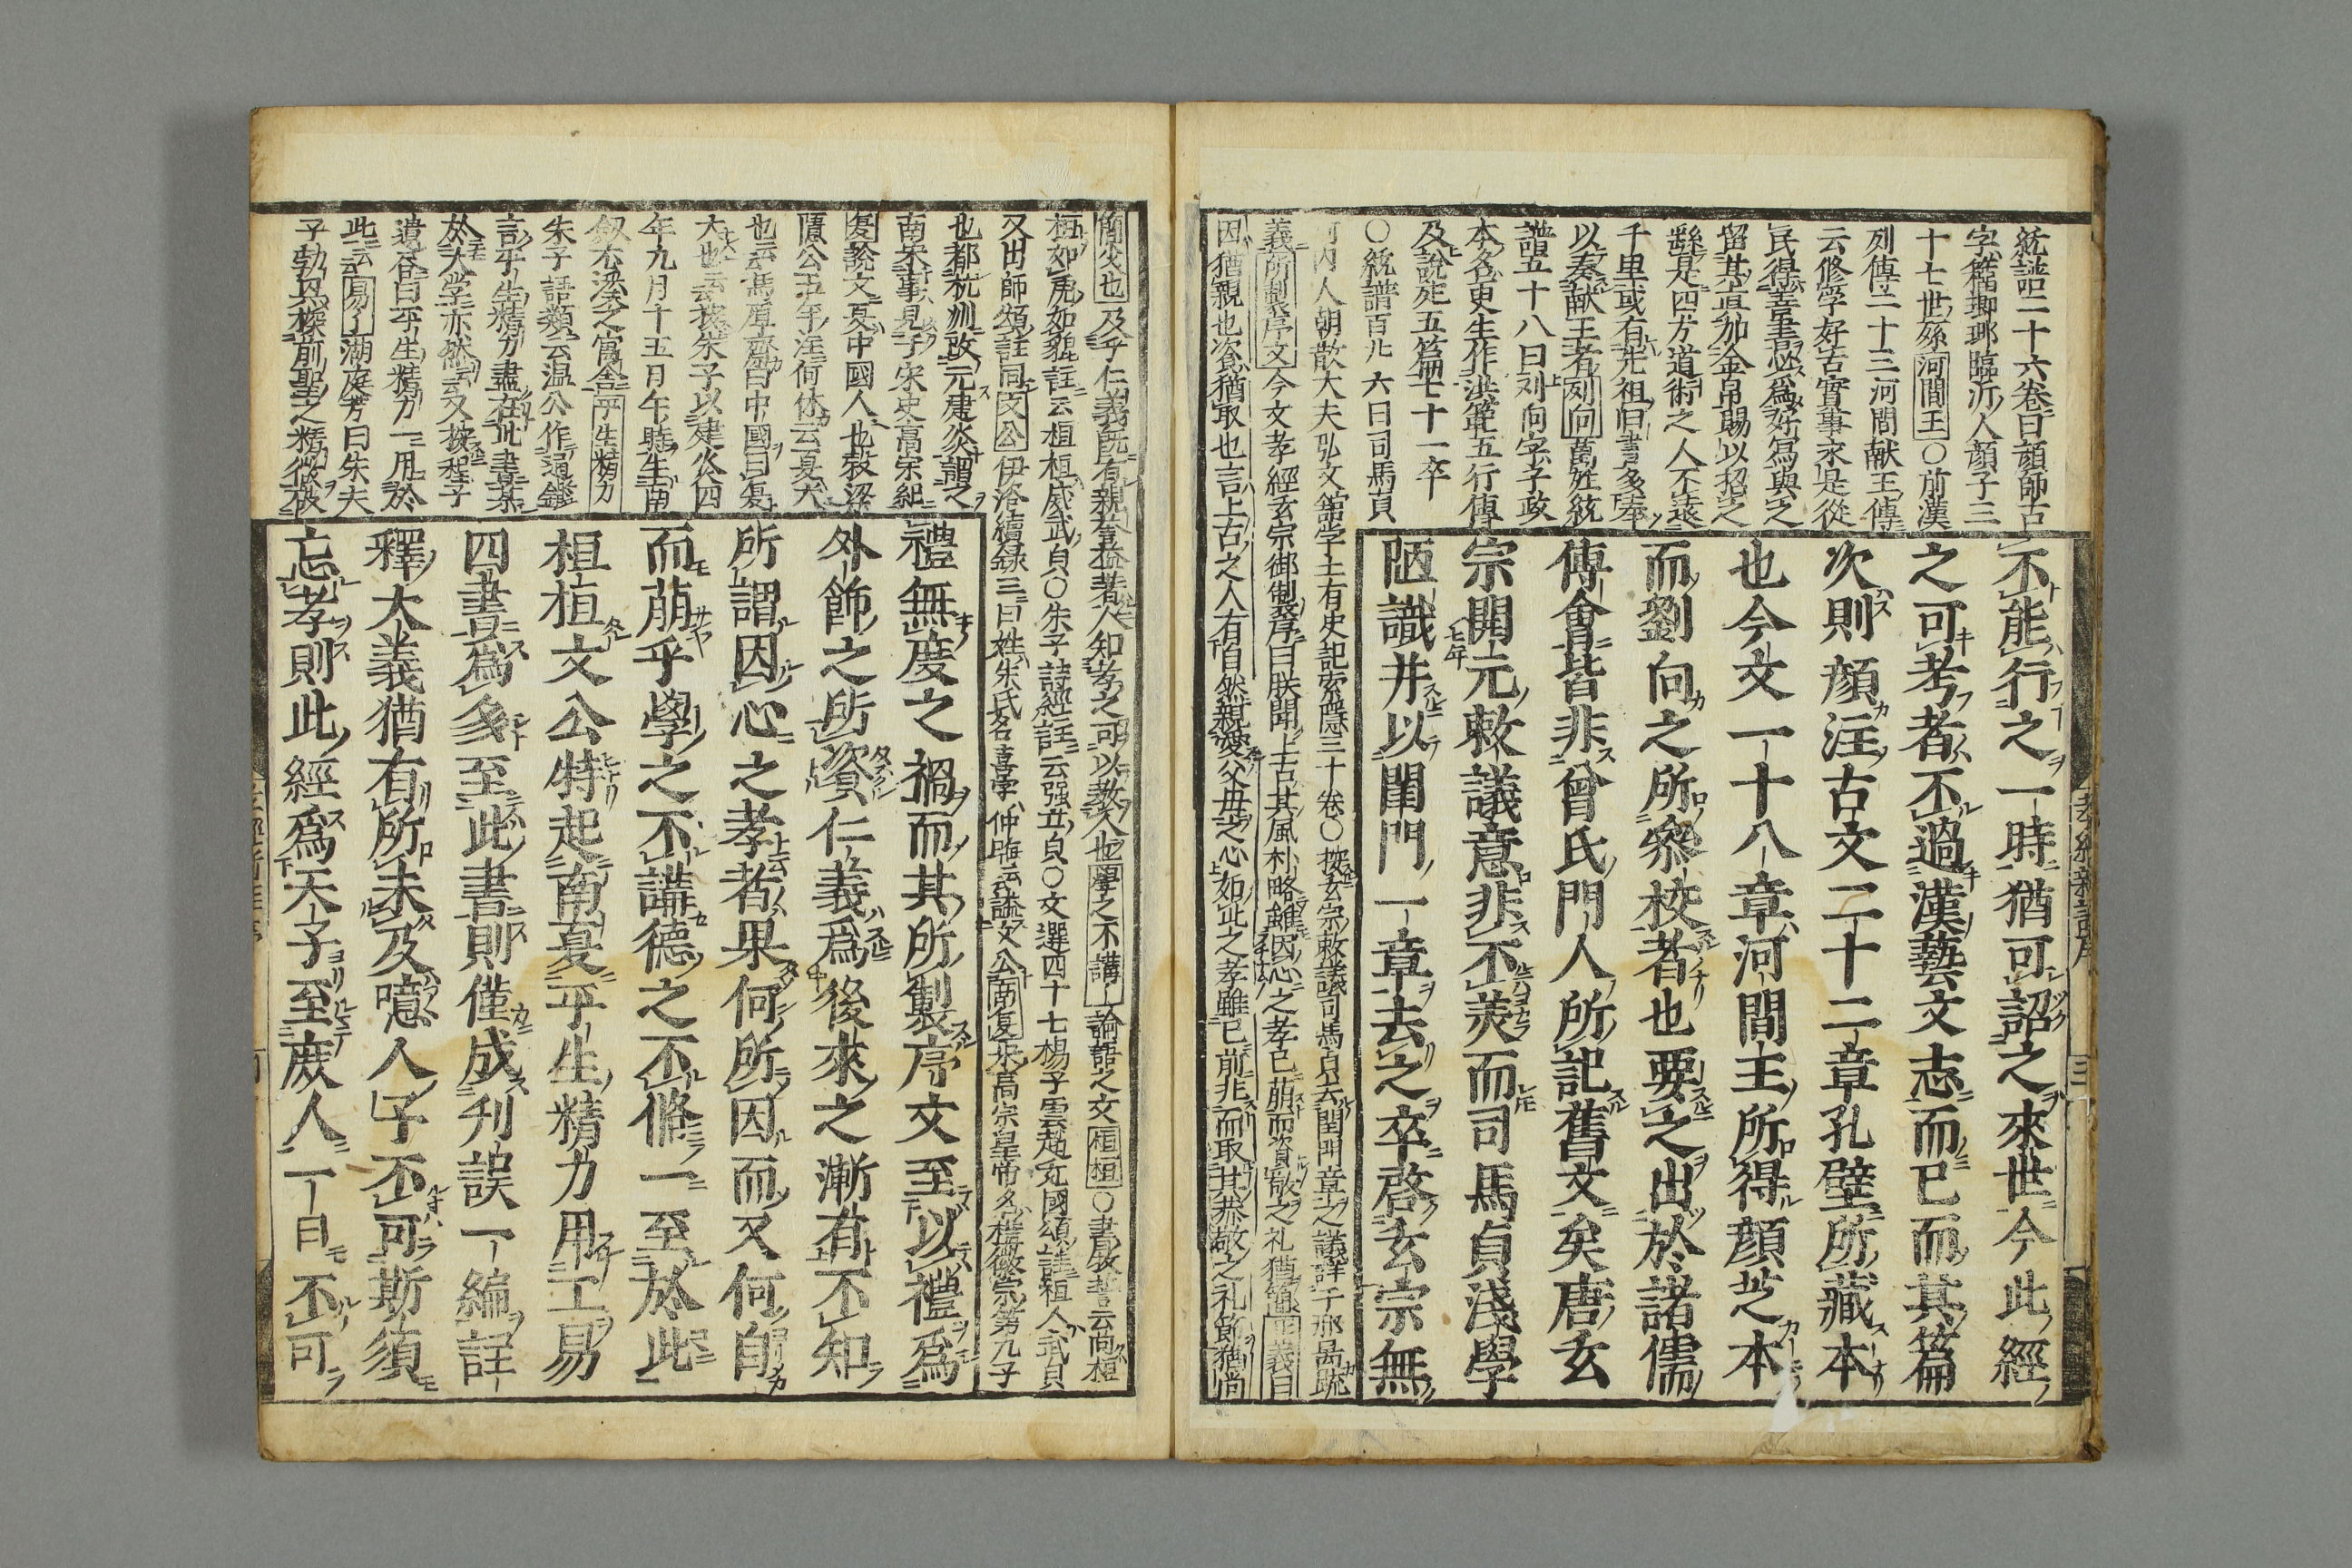 不能行之一時猶可詔之來世今此經
之可考者不過漢藝文志而已而其篇
次則顔注古文二十二章孔壁所藏本
也今文一十八章河間王所得顔芝本
而劉向之所參校者也要之出於諸儒
傳會皆非曾氏門人所記舊文矣唐玄
宗開元敕議意非不美而司馬貞淺學
陋識并以閨門一章去之卒啓玄宗無
統譜二十六卷曰顔師古
字籀瑯琊臨沂人顔子三
十七世孫河間王〇前漢
列傳二十三河間献王傳
云修学好古實事求是從
民得善書必爲好寫與之
留其眞加金帛賜以招之
繇是四方道術之人不遠
千里或有先祖旧書多奉
以奏献王者刘向萬姓統
譜五十八曰刘向字子政
本名更生作洪範五行傳
及說苑五篇七十一卒
〇統譜百九六曰司馬貞
河内人朝散大夫弘文館学士有史記索隠三十卷〇按玄宗敕議司馬貞去閨門章之議詳于邢昺疏
義所製序文今文孝經玄宗御制序曰朕聞上古其風朴略雖因心之孝已萌而資敬之礼猶簡正義曰
因猶親也资猶取也言上古之人有自然親愛父母之心如此之孝雖已前非而取其恭敬之礼節猶尚
簡炎也及乎仁義既有親誉益著人知孝之可以教人也學之不講論語之文桓桓〇書牧誓云尚桓
桓如虎如貔註云桓桓威武貞〇朱子詩經註云强立貞〇文選四十七楊子雲趙充國頌註桓桓人武貞
又出師頌註同文公伊洛續録三曰姓朱氏名喜字仲晦云謚文公南復宋高宗皇帝名構徽宗第九子
也都杭州改元建炎謂之
南宋事見于宋史髙宋紀
復說文夏中國人也穀梁
隱公五年注何休云夏大
也云馬厚齋曰中國曰夏
大也云按朱子以建炎四
年九月十五日午時生南
剱尤溪之寓舍平生精力
朱子語類云温公作通鑑
言平生精力盡在此書某
於大学亦然云又按程子
遺書曰平生精力一用於
此云易了湖庭芳曰朱夫
子動思探前聖之精微破
禮無度之禍而其所製序文至以禮爲
外飾之所資仁義爲後來之漸有不知
所謂因心之孝者果何所因而又何自
而萠乎學之不講德之不脩一至於此
桓桓文公特起南夏平生精力用工易
四書爲多至此書則僅成刋誤一編註
釋大義猶有所未及噫人子不可斯須
忘孝則此經爲天子至庶人一日不可